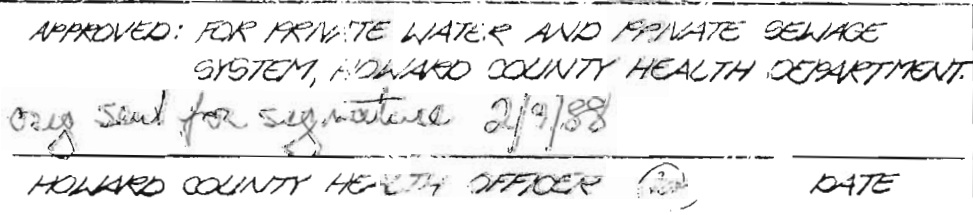 APPROVED: FOR PRIVATE WATER AND PRIVATE SEWAGE
SYSTEM, HOWARD COUNTY HEALTH DEPARTMENT.
orig sent for signature 2/9/88
HOWARD COUNTY HEALTH OFFICER DATE